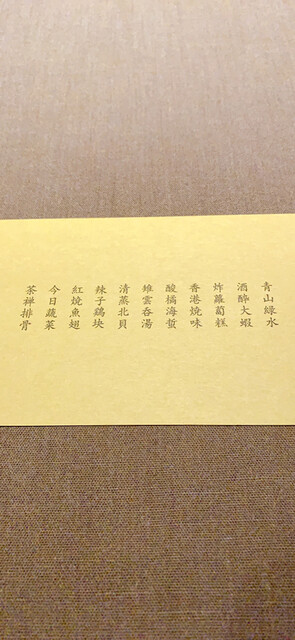 青山緑水
酒醉大蝦
炸蘿蔔糕
香港燒味
酸橘海蜇
錐雲呑湯
清蒸北貝
辣子鶏块
紅燒魚翅
今日蔬菜
茶禅排骨